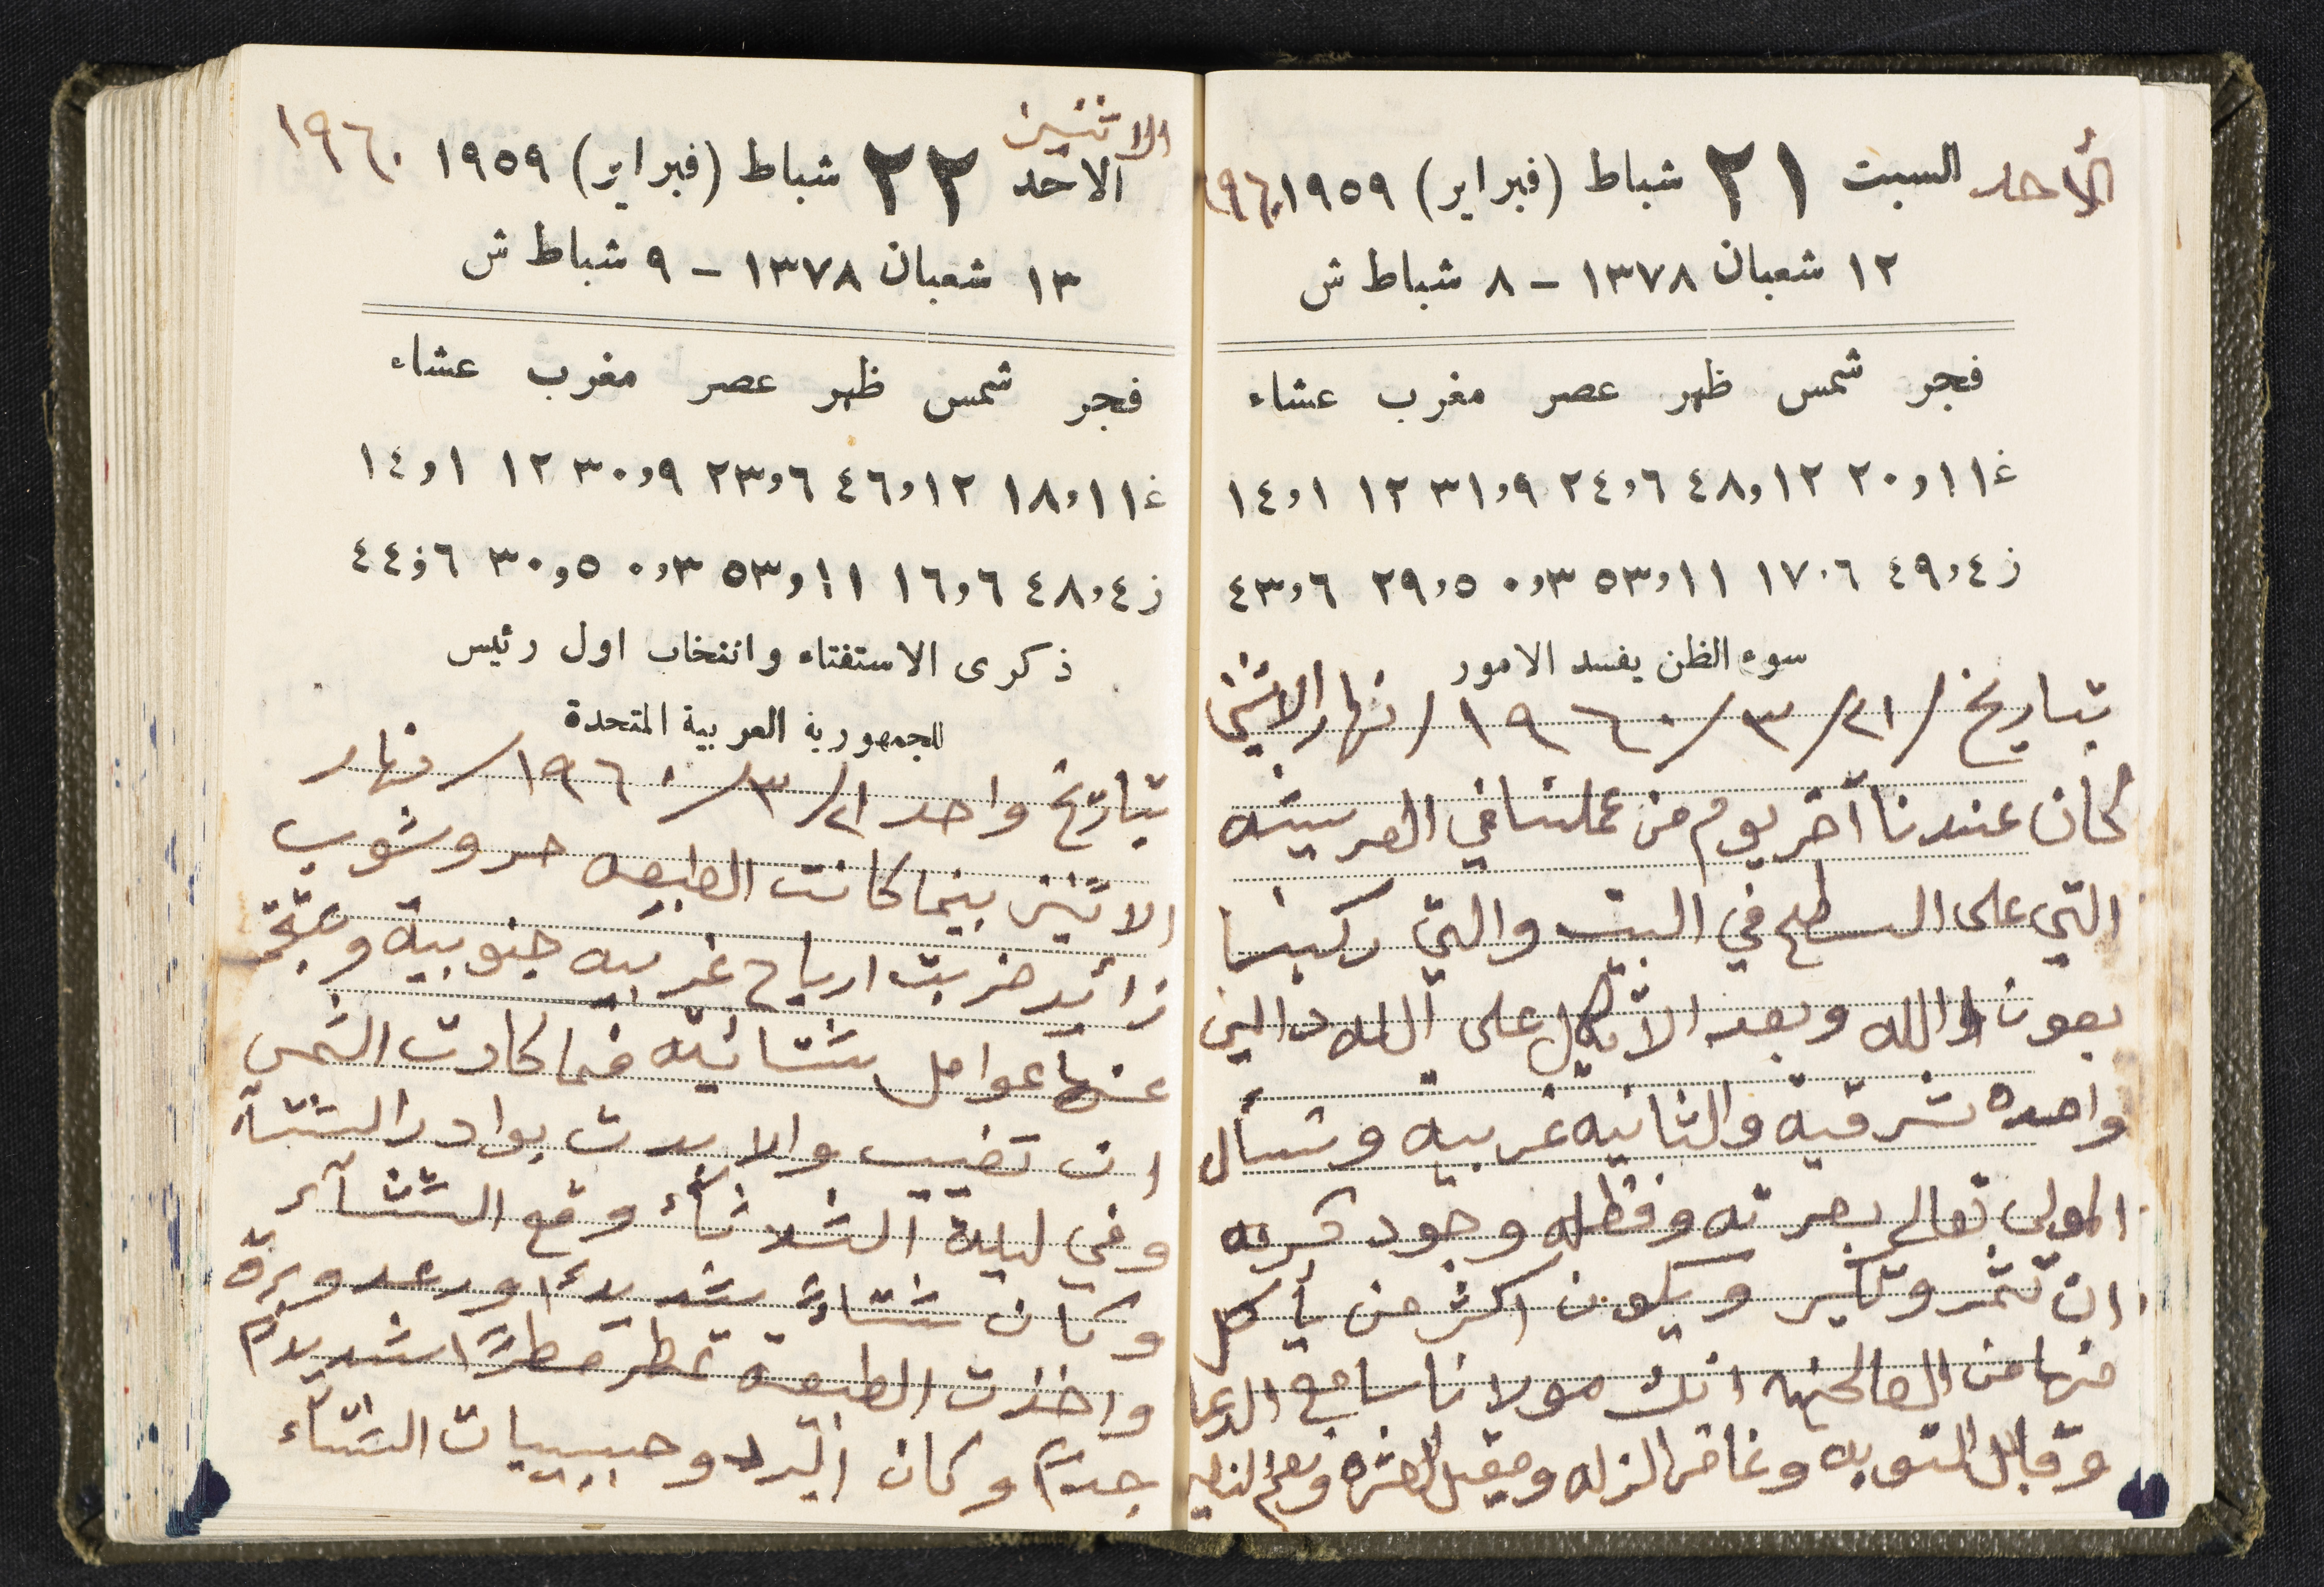 الأحد السبت ٢١ شباط (فبراير) ١٩٥٩ ١٩٦٠
١٢ شعبان ١٣٧٨ – ٨ شباط ش
فجر شمس ظهر عصر مغرب عشاء
غ ١١،٢٠ ١٢،٤٨ ٦،٢٤ ٩،٣١ ١٢ ١،١٤
ز ٤،٤٩ ٦،١٧ ١١،٥٣ ٣،٠ ٥،٢٩ ٦،٤٣
سوء الظن يفسد الامور
بتاريخ /٢١/٣/١٩٦٠/ نهار الاثنين
كان عندنا آخر يوم من عملنا في العريشه
التي على السطح في البيت والتي ركبنا
بعون الله وبعد الاتكال على الله داليتين
واحده شرقية والثانيه غربيه ونسأل
المولى تعالى بعزته وفظله وجود كرمه
ان تثمر وتكبر ويكون اكثر من يأكل
منها من الصالحين انك مولانا سامع الدعا
وقابل التوبه وغافر الزله ومقيل العثره ونعم النصير
الاثنين
الاحد ٢٢ شباط (فبراير) ١٩٥٩ ١٩٦٠
١٣ شعبان ١٣٧٨ – ٩ شباط ش
فجر شمس ظهر عصر مغرب عشاء
غ ١١،١٨ ١٢،٤٦ ٦،٢٣ ٩،٣٠ ١٢ ١،١٤
ز ٤،٤٨ ٦،١٦ ١١،٥٣ ٣،٠ ٥،٣٠ ٦،٤٤
ذكرى الاستفتاء وانتخاب اول رئيس
للجمهورية العربية المتحدة
بتاريخ واحد ٢١/٣/١٩٦٠/ نهار
الاثنين بينما كانت الطبعه حر وشوب
زائد ضربت ارياح غربيه جنوبية ونتج
عنها عوامل شتائيه فما كادت الشمس
ان تغيب والا بدت بوادر الشتآ
وفي ليلة الثلاثآء وقع الشتآء
وكان شتاءً شديدًا ورعد وبرق
واخذت الطبعه تمطر مطرًا شديدًا
جدًا وكان البرد وحبيبات الشتآء